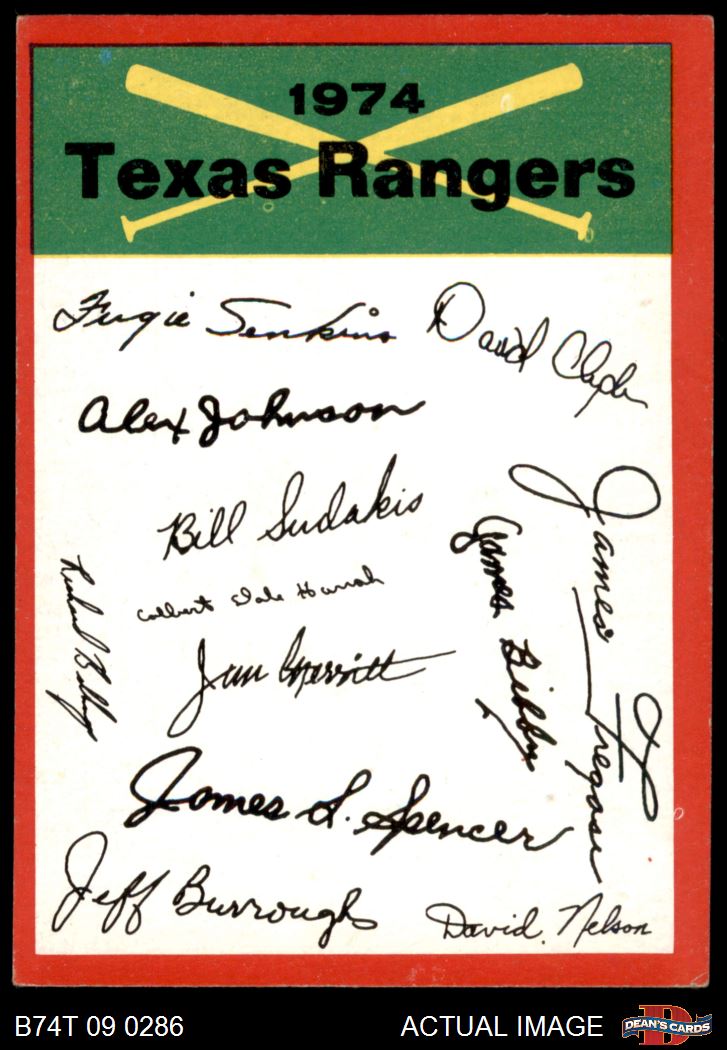 1974
Texas Rangers
Fergie Jenkins
David Clyde
Alex Johnson
Bill Sudakis
James Fregosi
James Bibby
Richard Billings
Colbert Dale Harrah
Jim Merritt
James L. Spencer
Jeff Burroughs
David. Nelson
B74T 09 0286
ACTUAL IMAGE
D
DEAN'S CARDS